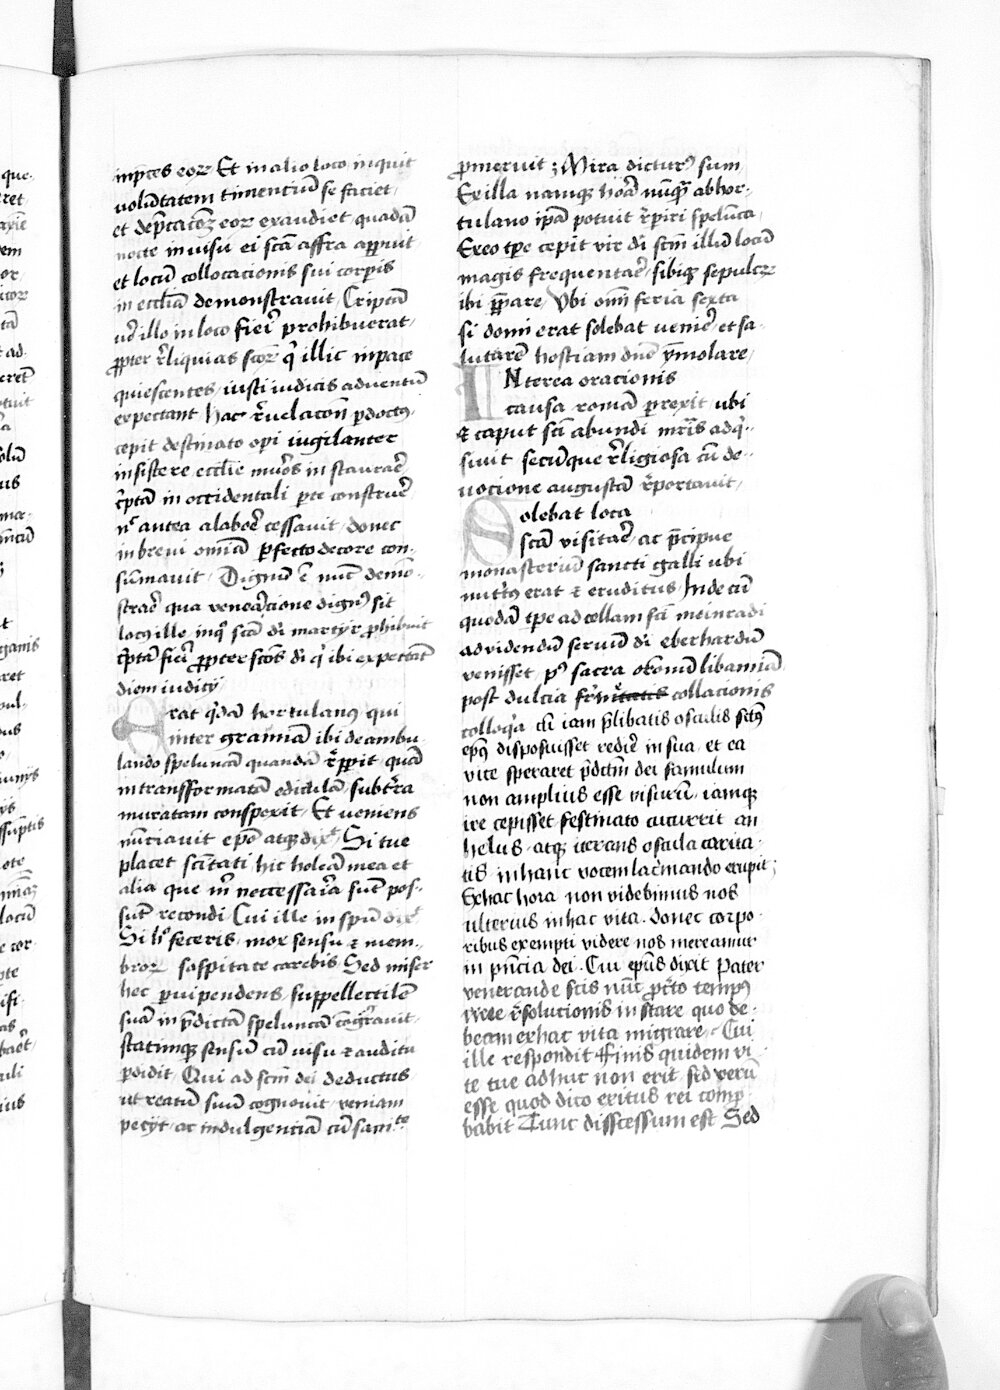 inp̄ces eoꝝ Et in alio loco inquit
volūtatem timentiū se faciet
et dep̄cacōeꝫ eoꝝ exaudiet quadā
nocte in visu ei scā affra apparuit
et locū collocacionis sui corp̄is
in eccl̄ia demonstravit Criptā
v̄o illo in loco fieri prohibuerat
ꝓpter reliquias scōꝝ q̄ illic in pace
quiescentes iusti iudicis adventū
expectant Hac revelacōne ꝑdoctus
cepit destinato opi iugilanter
insistere ecclie muros in staurare
c̄ptā in occidentali ꝑte construe̅
n̄ antea a labore cessavit donec
in brevi omnia ꝑfecto decore con-
sūmavit Dignū ē nūc demō-
strare qua veneracione dignꝰ sit
locus ille inquā scā dī martyr ꝓhibuit
c̄ptā fieri ꝓpter scōs dī q̄ ibi expectāt
diem iudicij
Erat quidā hortulanus qui
inter gramīa ibi deambu
lando speluncā quandā repperit quā
in transformatā ediculā subterra
muratam conspexit Et veniens
nūciavit epō atqꝫ dixit Si tue
placet sc̄itati hic holera mea et
alia que m̄ neccessaria sūt pos-
sūt recondi Cui ille in spū dixit
Si hoc feceris mox sensu et mem-
broꝝ sospitate carebis Sed miser
hec ꝑvipendens suppellectilē
suā in p̄dictā speluncā congregavit
statimqꝫ sensū cū visu et auditu
ꝑdidit Qui ad scm̄ dei deductus
ut reatū suū cognovit veniam
petijt ac indulgenciā cū sanite
ꝓmeruit ; Mira dicturꝰ sum
Ex illa namqꝫ hora nūquā ab hor-
tulano ip̄a potuit rep̄iri spelūca
Ex eo tp̄e cepit vir dī scm̄ illū locū
magis frequentare sibiqꝫ sepulcꝝ
ibi ꝑpare Ubi omī feria sexta
si domi erat solebat venire et sa-
lutarē hostiam dn̄e ymolare
INterea oracionis
causa romā perrexit ubi
et caput sci abundi mris adq̄-
sivit secūque religiosa cū de-
vocione augustā reportavit
Solebat loca
scā visitare ac p̄cipue
monasteriū sancti galli ubi
nutritus erat et eruditus Inde cū
quodā tp̄e ad cellam sci meinradi
ad videndū servū dī eberhardū
venisset pꝰ sacra
post dulcia collacionis
colloquia cū iam p̄libatis osculis sctūs
ep̄us disposuisset redire in sua et ea
vice speraret p̄dictm̄ dei famulum
non amplius esse visurū iamqꝫ
ire cepisset festinato cucurrit an
helus atqꝫ iterans oscula carita
tis in hanc vocem lacrimando erupit ;
Ex hac hora non videbimus nos
ulterius in hac vita donec corpo
ribus exempti videre nos mereamur
in p̄ncia dei Cui ep̄us dixit Pater
venerande scis nūc p̄cto tempus
mee resolucionis in stare quo de-
beam ex hac vita migrare Cui
ille respondit Finis quidem vi
te tue adhuc non erit sed verū
esse quod dico eritus rei comp
babit Tunc disscessum est Sed